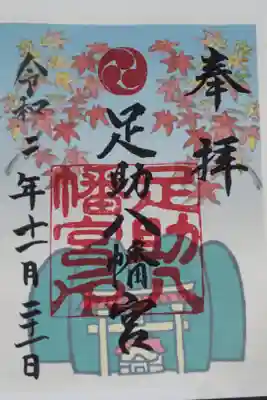 奉拝
足助八幡宮
足助八
幡宮印
令和二年十一月二十一日